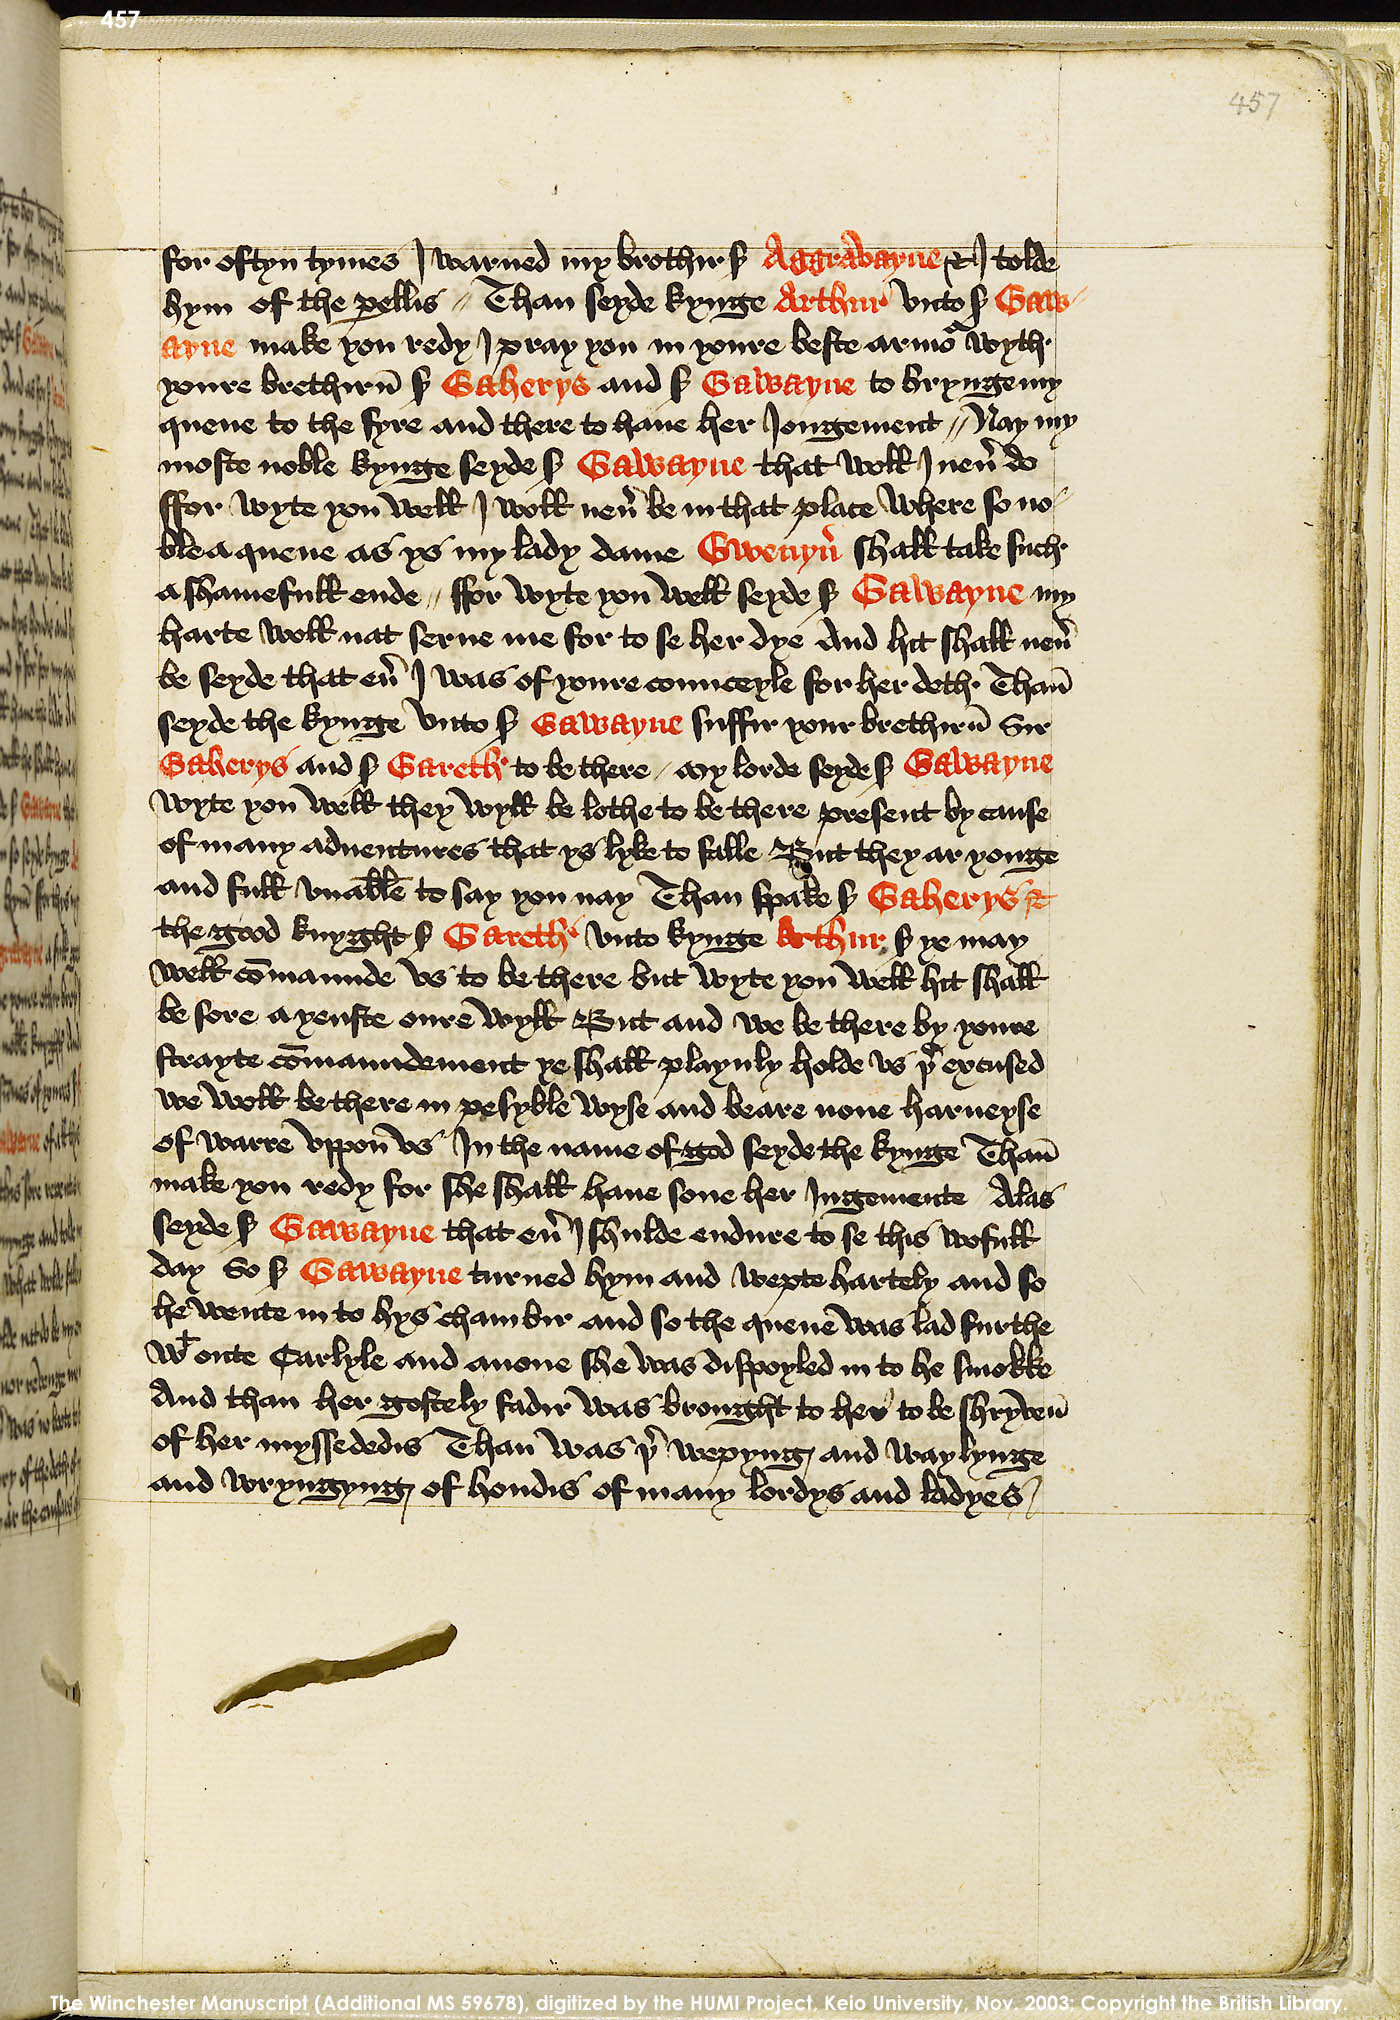 457
457
for oftyn tymes I warned my brothir Sʳ Aggravayne & I tolde
hym of the pellis // Than seyde kynge Arthur vnto Sʳ Gaw-
ayne make you redy I pray you in youre beste armoʳ wyth
youre brethirn̄ Sʳ Gaherys and Sʳ Gawayne to brynge my
quene to the fyre and there to haue her Iougement // Nay my
moste noble kynge seyde Sʳ Gawayne that woll I neu̾ do
ffor wyte you well I woll neu̾ be in that place where so no-
ble a quene as ys my lady dame Gwenyu̾ shall take such
a shamefull ende // ffor wyte you well seyde Sʳ Gawayne my
harte woll nat serue me for to se her dye And hit shall neu̾
be seyde that eu̾ I was of youre counceyle for her deth Than̄
seyde the kynge vnto Sʳ Gawayne suffir your brethirn̄ Sir
Gaherys and Sʳ Gareth to be there / My lorde seyde Sʳ Gawayne
wyte you well they wyll be lothe to be there present by cause
of many aduentures that ys lyke to falle But they ar yonge
and full vnable to say you nay Than spake Sʳ Gaherys &
the good knyght Sʳ Gareth vnto kynge Arthur Sʳ ye may
well com̄aunde vs to be there but wyte you well hit shall
be sore ayenste oure wyll But and we be there by youre
strayte com̄aundement ye shall playnly holde vs þͬ excused
we woll be there in pesyble wyse and beare none harneyse
of warre vppon vs In the name of god seyde the kynge Than̄
make you redy for she shall haue sone her Iugemente Alas
seyde Sʳ Gawayne that eu̾ I shulde endure to se this wofull
day So Sʳ Gawayne turned hym and wepte hartely and so
he wente in to hys chambir and so the quene was lad furthe
wᵗ oute Carlyle and anone she was dispoyled in to he smokke
And than her gostely fadir was brought to her to be shryven̄
of her myssededis Than was þͬ wepyng and waylynge
and wryngyng of hondis of many lordys and ladyes /
The Winchester Manuscript (Additional MS 59678), digitized by the HUMI Project, Keio University, Nov. 2003; Copyright the British Library.